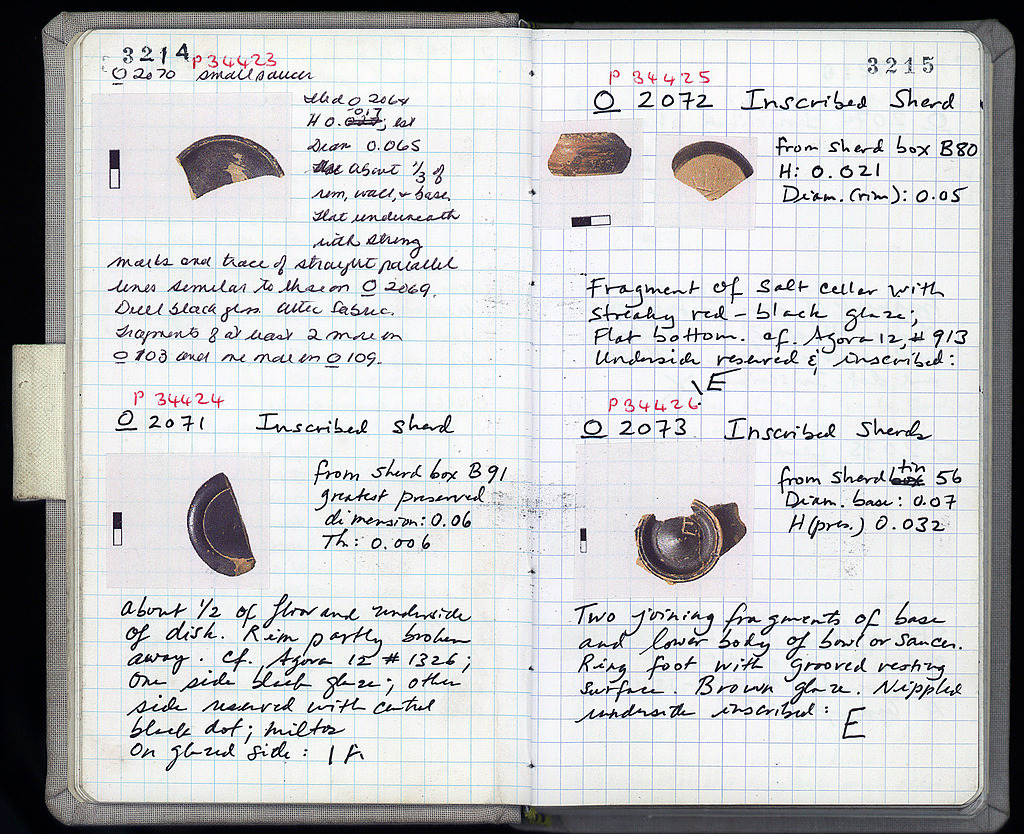 3214
P 34423
O 2070 small saucer
H 0.017; est
Diam 0.065
About 1/3 of
rim, wall, & base.
Flat underneath
with strong
marks and trace of straight parallel
lines similar to those on O 2069.
Dull black gloss. Attic fabric.
Fragments of at least 2 more in
O 103 and one more in O 109.
P 34424
O 2071 Inscribed Sherd
from sherd box B 91
greatest preserved
dimension: 0.06
Th.: 0.006
About 1/2 of floor and underside
of dish. Rim partly broken
away. Cf. Agora 12 # 1326;
One side black glaze; other
side reserved with central
black dot; miltos
On glazed side:
3215
P 34425
O 2072 Inscribed Sherd
from sherd box B80
H: 0.021
Diam. (rim): 0.05
Fragment of salt cellar with
streaky red-black glaze;
Flat bottom. cf. Agora 12, # 913
Underside reserved & inscribed:
\E
P 34426
O 2073 Inscribed Sherds
from sherd tin 56
Diam. base: 0.07
H (pres.) 0.032
Two joining fragments of base
and lower body of bowl or saucer.
Ring foot with grooved resting
surface. Brown glaze. Nippled
underside inscribed: E